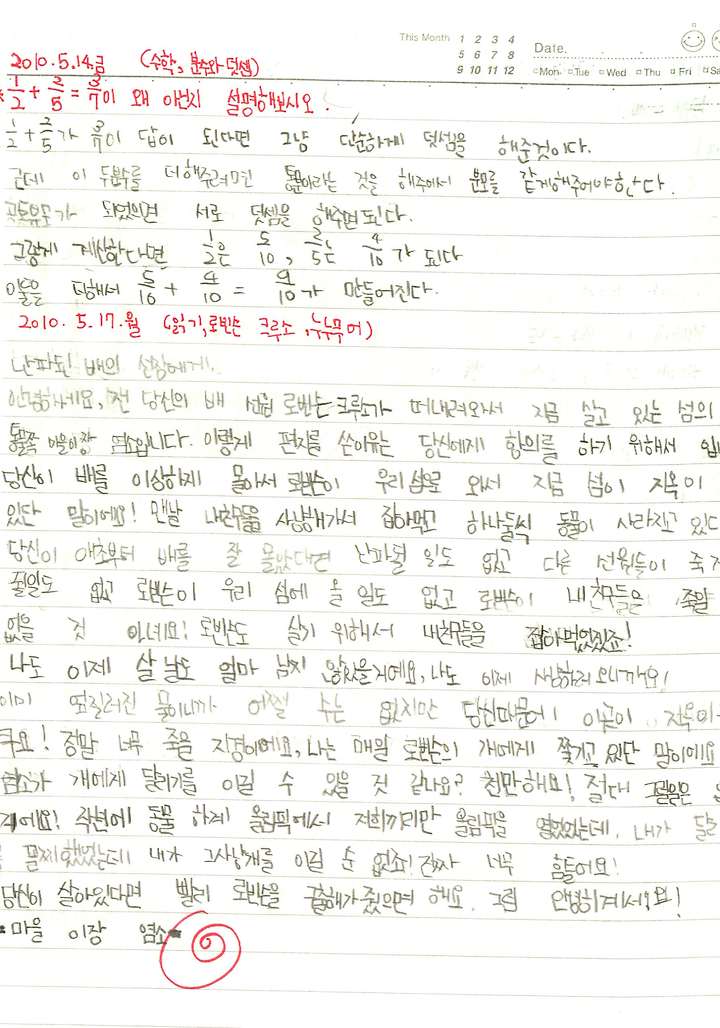 This Month 1 2 3 4
5 6 7 8
9 10 11 12
Date.
Mon Tue Wed Thu Fri Sa
2010.5.14.금 (수학, 분수와 덧셈)
1/2 + 2/5 = 3/7이 왜 아닌지 설명해보시오.
1/2 + 2/5가 3/7이 답이 된다면 그냥 단순하게 덧셈을 해준것이다.
근데 이 두분수를 더해주려면 통분이라는 것을 해주어서 분모를 같게해주어야한다.
공통분모가 되었으면 서로 덧셈을 해주면된다.
그렇게 계산한다면 1/2은 5/10, 2/5는 4/10가 된다
이둘을 더해서 5/10 + 4/10 = 9/10가 만들어진다.
2010.5.17.월 (읽기, 로빈슨 크루소,
난파된 배의 선장에게.
안녕하세요, 전 당신의 배 선원 로빈슨크루소가 떠내려와서 지금 살고 있는 섬의
동물 마을이장 염소입니다. 이렇게 편지를 쓴이유는 당신에게 항의를 하기 위해서 입
당신이 배를 이상하게 몰아서 로빈슨이 우리섬으로 와서 지금 섬이 지옥이
있단 말이에요! 맨날 내친구들을 사냥해가서 잡아먹고 하나둘씩 동물이 사라지고 있다
당신이 애초부터 배를 잘 몰았다면 난파될 일도 없고 다른 선원들이 죽게
될일도 없고 로빈슨이 우리 섬에 올 일도 없고 로빈슨이 내친구들을 죽일
없을 것 아네요! 로빈슨도 살기 위해서 내친구들을 잡아먹었겠죠!
나도 이제 살 날도 얼마 남지 않았을거예요, 나도 이제 사냥하러 오니까요!
이미 엎질러진 물이니까 어쩔 수는 없지만 당신때문에 이곳이 지옥이
구요! 정말 너무 죽을 지경이에요, 나는 매일 로빈슨의 개에게 쫓기고 있단 말이에요
염소가 개에게 달리기를 이길 수 있을 것 같나요? 천만해요! 절대 그럴일은 없
거에요! 작년에 동물 하계 올림픽에서 저희끼리만 올림픽을 열었었는데, 내가 달
했었는데 내가 그사냥개를 이길 순 없죠! 진짜 너무 힘들어요!
당신이 살아있다면 빨리 로빈슨을 구해가줬으면 해요. 그럼 안녕히계세요!
마을 이장 염소